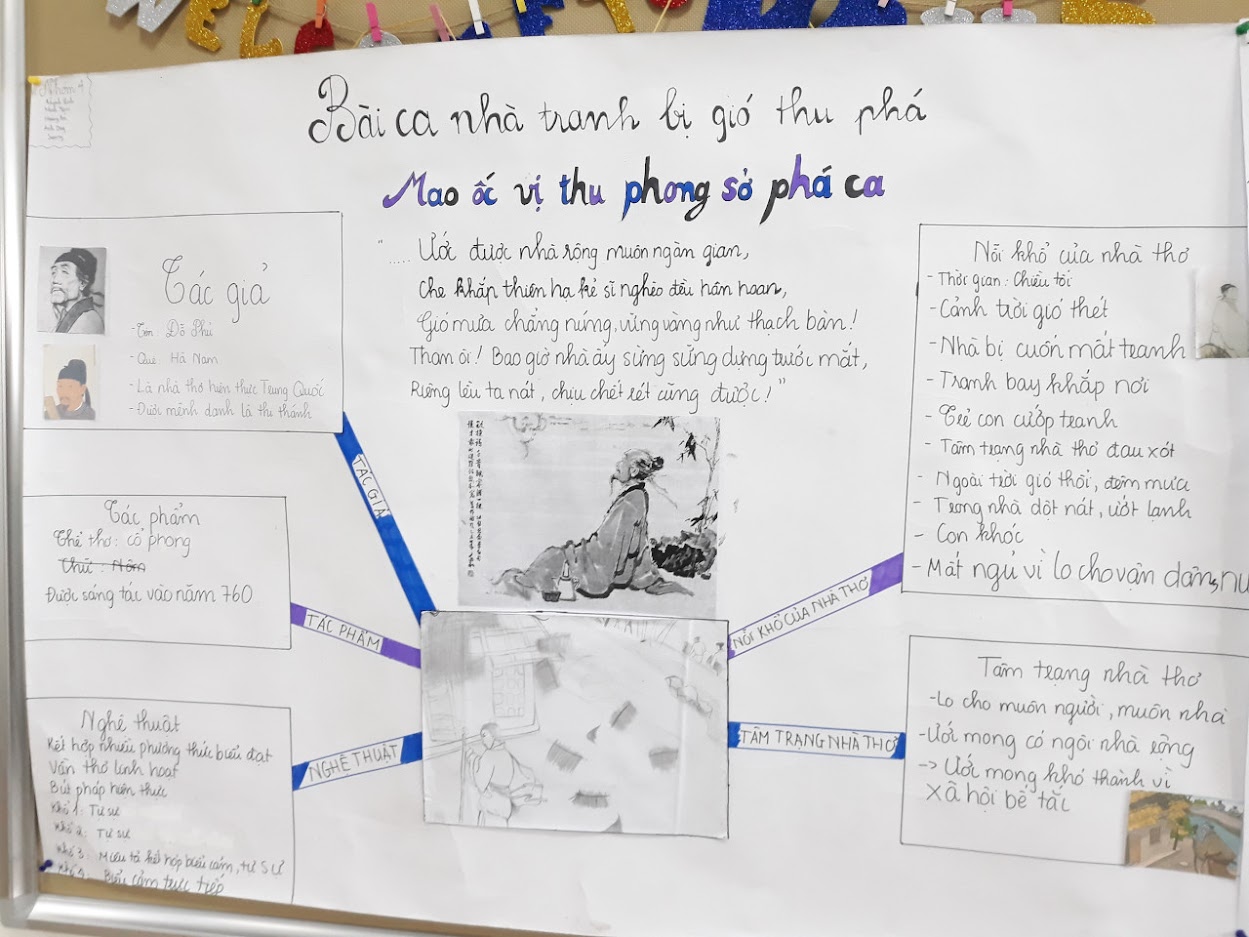 WELCO
Nhóm 4
Bài ca nhà tranh bị gió thu phá
Mao ốc vị thu phong sở phá ca
"..... Ước được nhà rộng muôn ngàn gian,
Che khắp thiên hạ kẻ sĩ nghèo đều hân hoan,
Gió mưa chẳng núng, vững vàng như thạch bàn!
Than ôi! Bao giờ nhà ấy sừng sững dựng trước mắt,
Riêng lều ta nát, chịu chết rét cũng được!"
Tác giả
- Tên: Đỗ Phủ
- Quê Hà Nam
- Là nhà thơ hiện thực Trung Quốc
- Được mệnh danh là thi thánh
TÁC GIẢ
Tác phẩm
Thể thơ: cổ phong
Chữ: Nôm
Được sáng tác vào năm 760
TÁC PHẨM
Nghệ thuật
Kết hợp nhiều phương thức biểu đạt
Vần thơ linh hoạt
Bút pháp hiện thực
Khổ 1: Tự sự
Khổ 2: Tự sự
Khổ 3: Miêu tả kết hợp biểu cảm, tự sự
Khổ 4: Biểu cảm trực tiếp
NGHỆ THUẬT
Nỗi khổ của nhà thơ
- Thời gian: Chiều tối
- Cảnh trời gió thét
- Nhà bị cuốn mất tranh
- Tranh bay khắp nơi
- Trẻ con cướp tranh
- Tâm trạng nhà thơ đau xót
- Ngoài trời gió thổi, đêm mưa
- Trong nhà dột nát, ướt lạnh
- Con khóc
- Mất ngủ vì lo cho vận dân, nư
NỖI KHỔ CỦA NHÀ THƠ
Tâm trạng nhà thơ
- Lo cho muôn người, muôn nhà
- Ước mong có ngôi nhà rộng
-> Ước mong khó thành vì
xã hội bế tắc
TÂM TRẠNG NHÀ THƠ